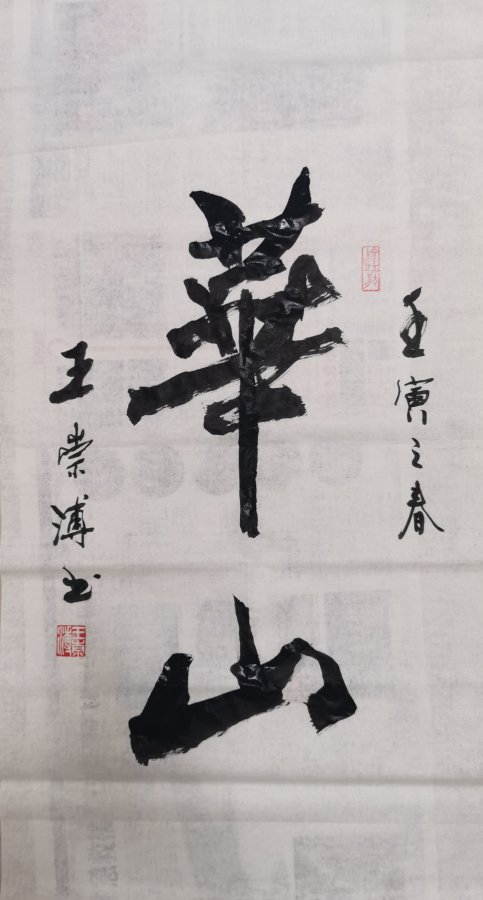 壬寅之春
華山
王崇溥书